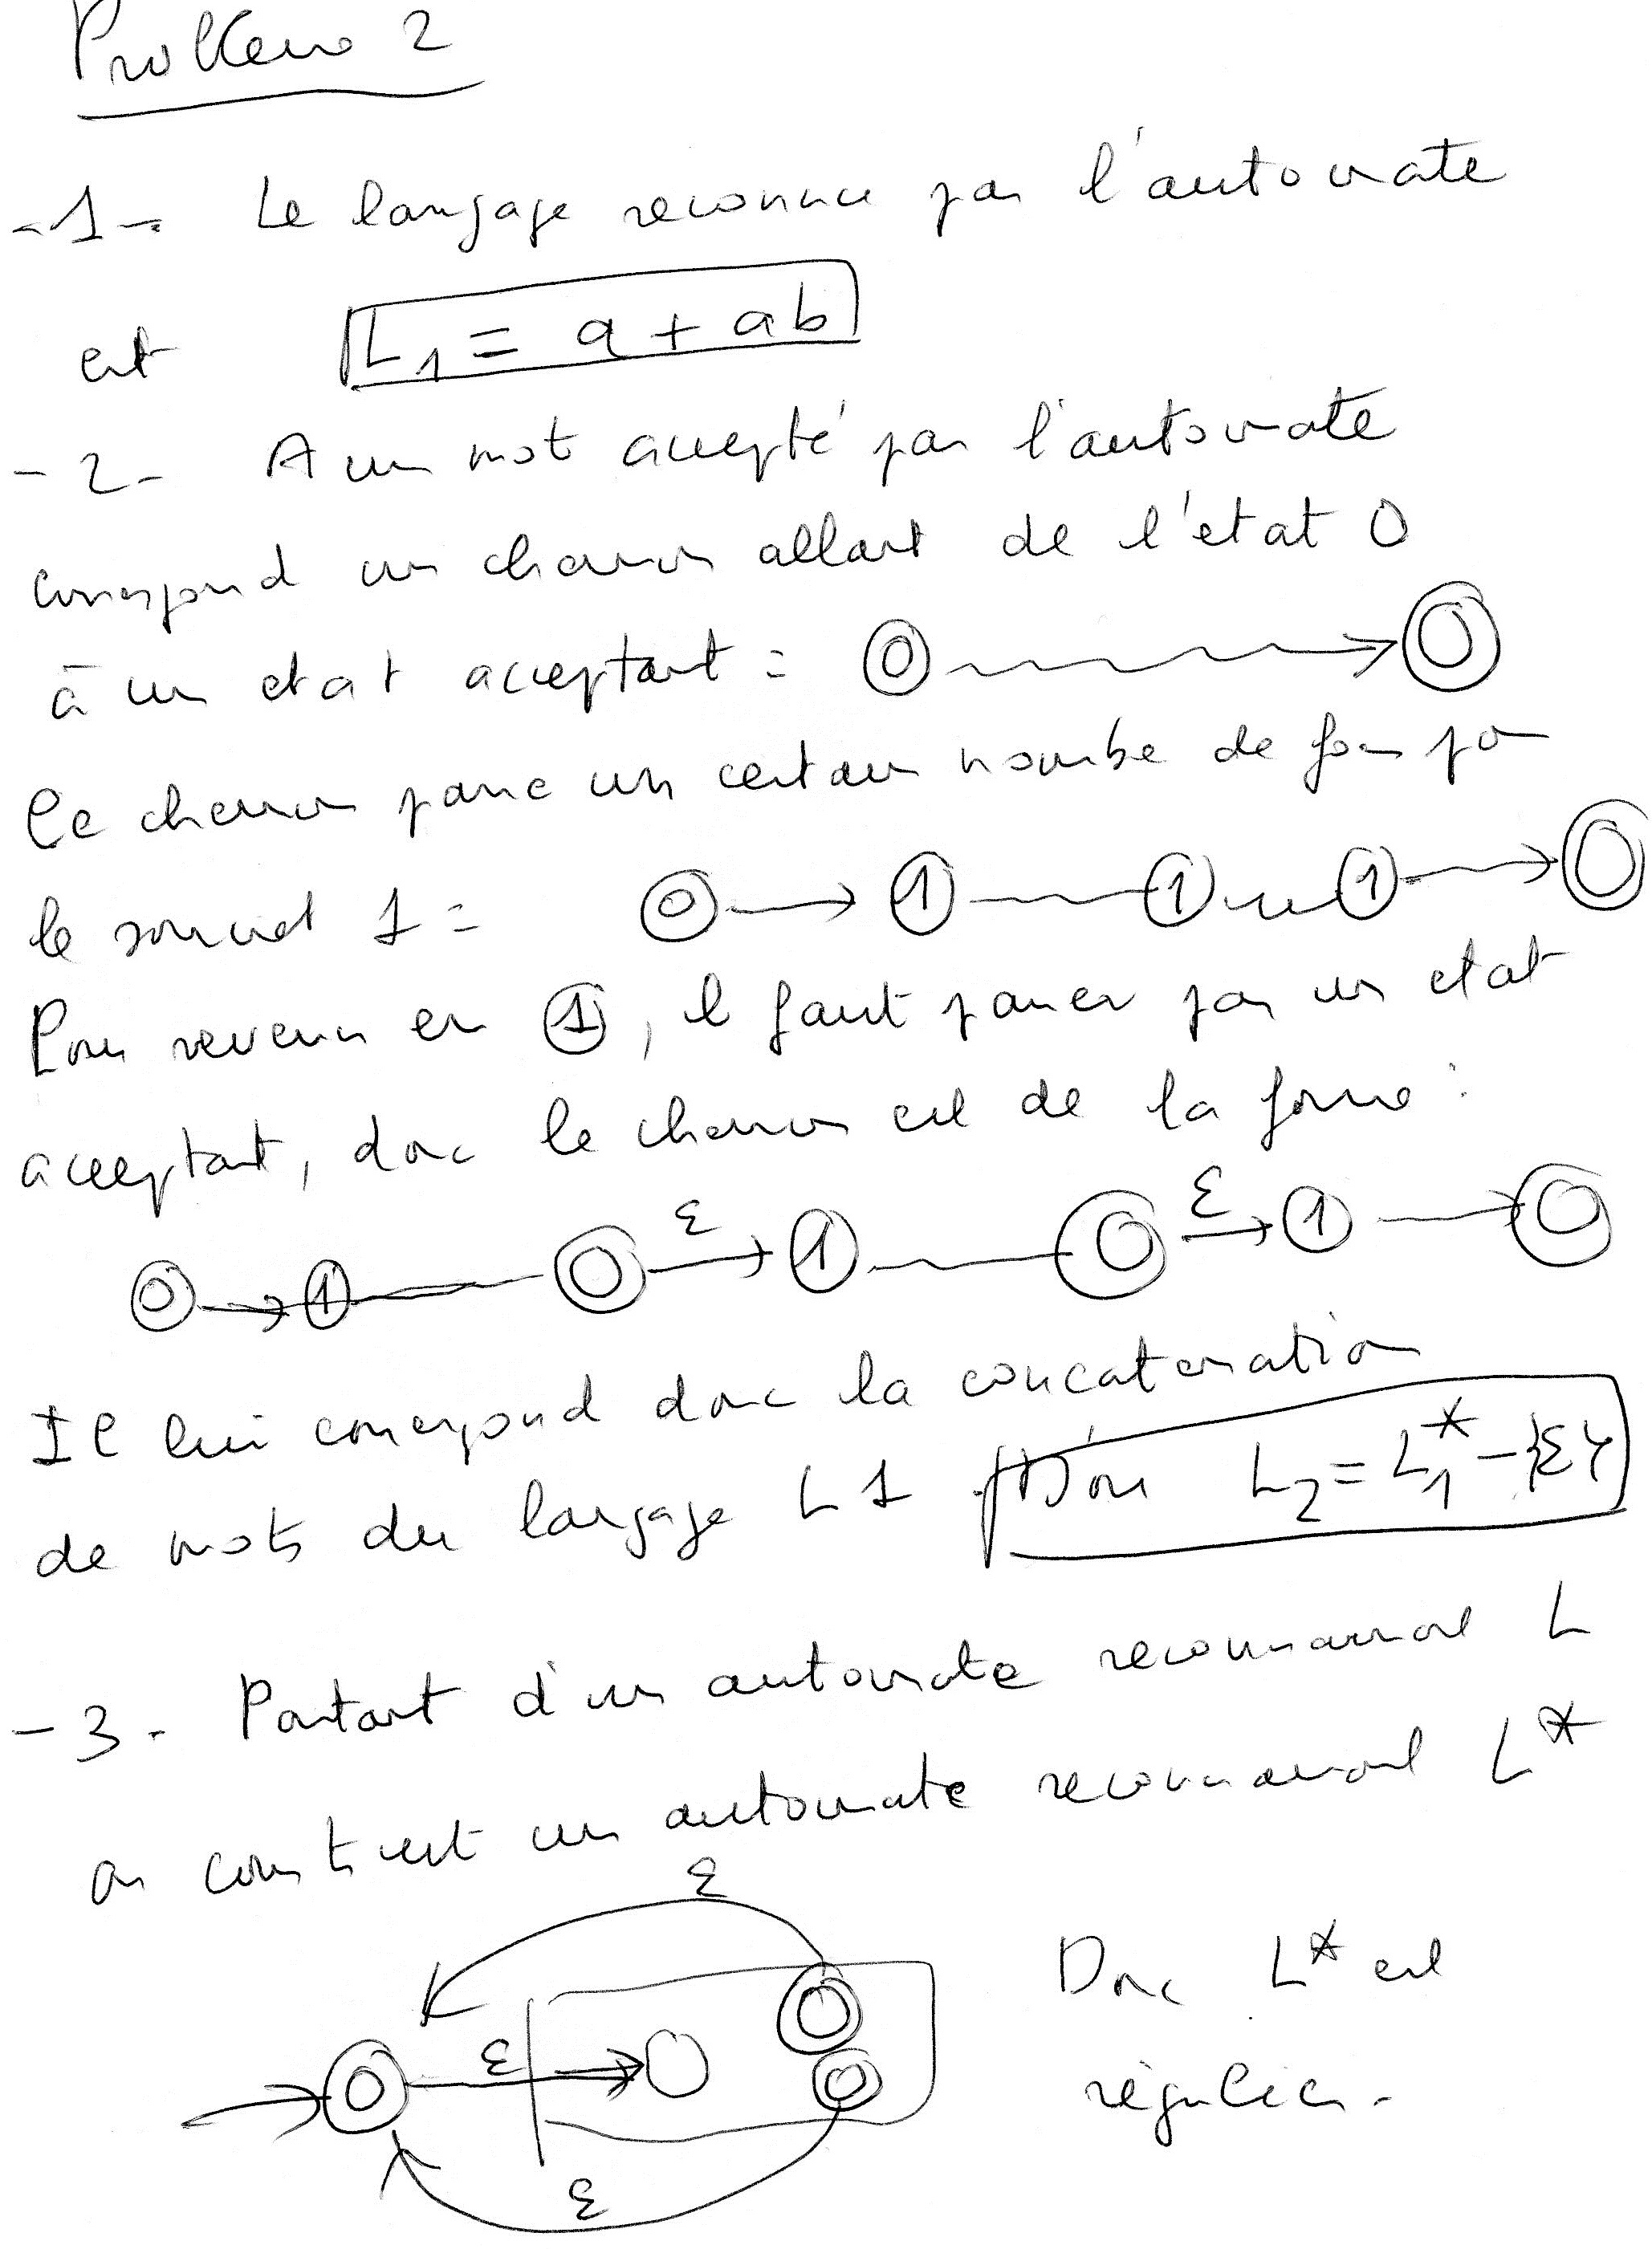 Problème 2
-1- Le langage reconnu par l'automate
est L1 = a + ab
-2- A un mot accepté par l'automate
correspond un chemin allant de l'état 0
à un etat acceptant : 0
Ce chemin passe un certain nombre de fois par
le sommet 1 : 0 1 1 1
Pour revenir en 1, il faut passer par un etat
acceptant, donc le chemin est de la forme :
0 1 ε 1 ε 1
Il lui correspond donc la concatenation
de mots du langage L1. D'où L2 = L1* - {ε}
-3- Partant d'un automate reconnaissant L
on construit un automate reconnaissant L*
ε
Donc L* est
ε
régulier.
ε